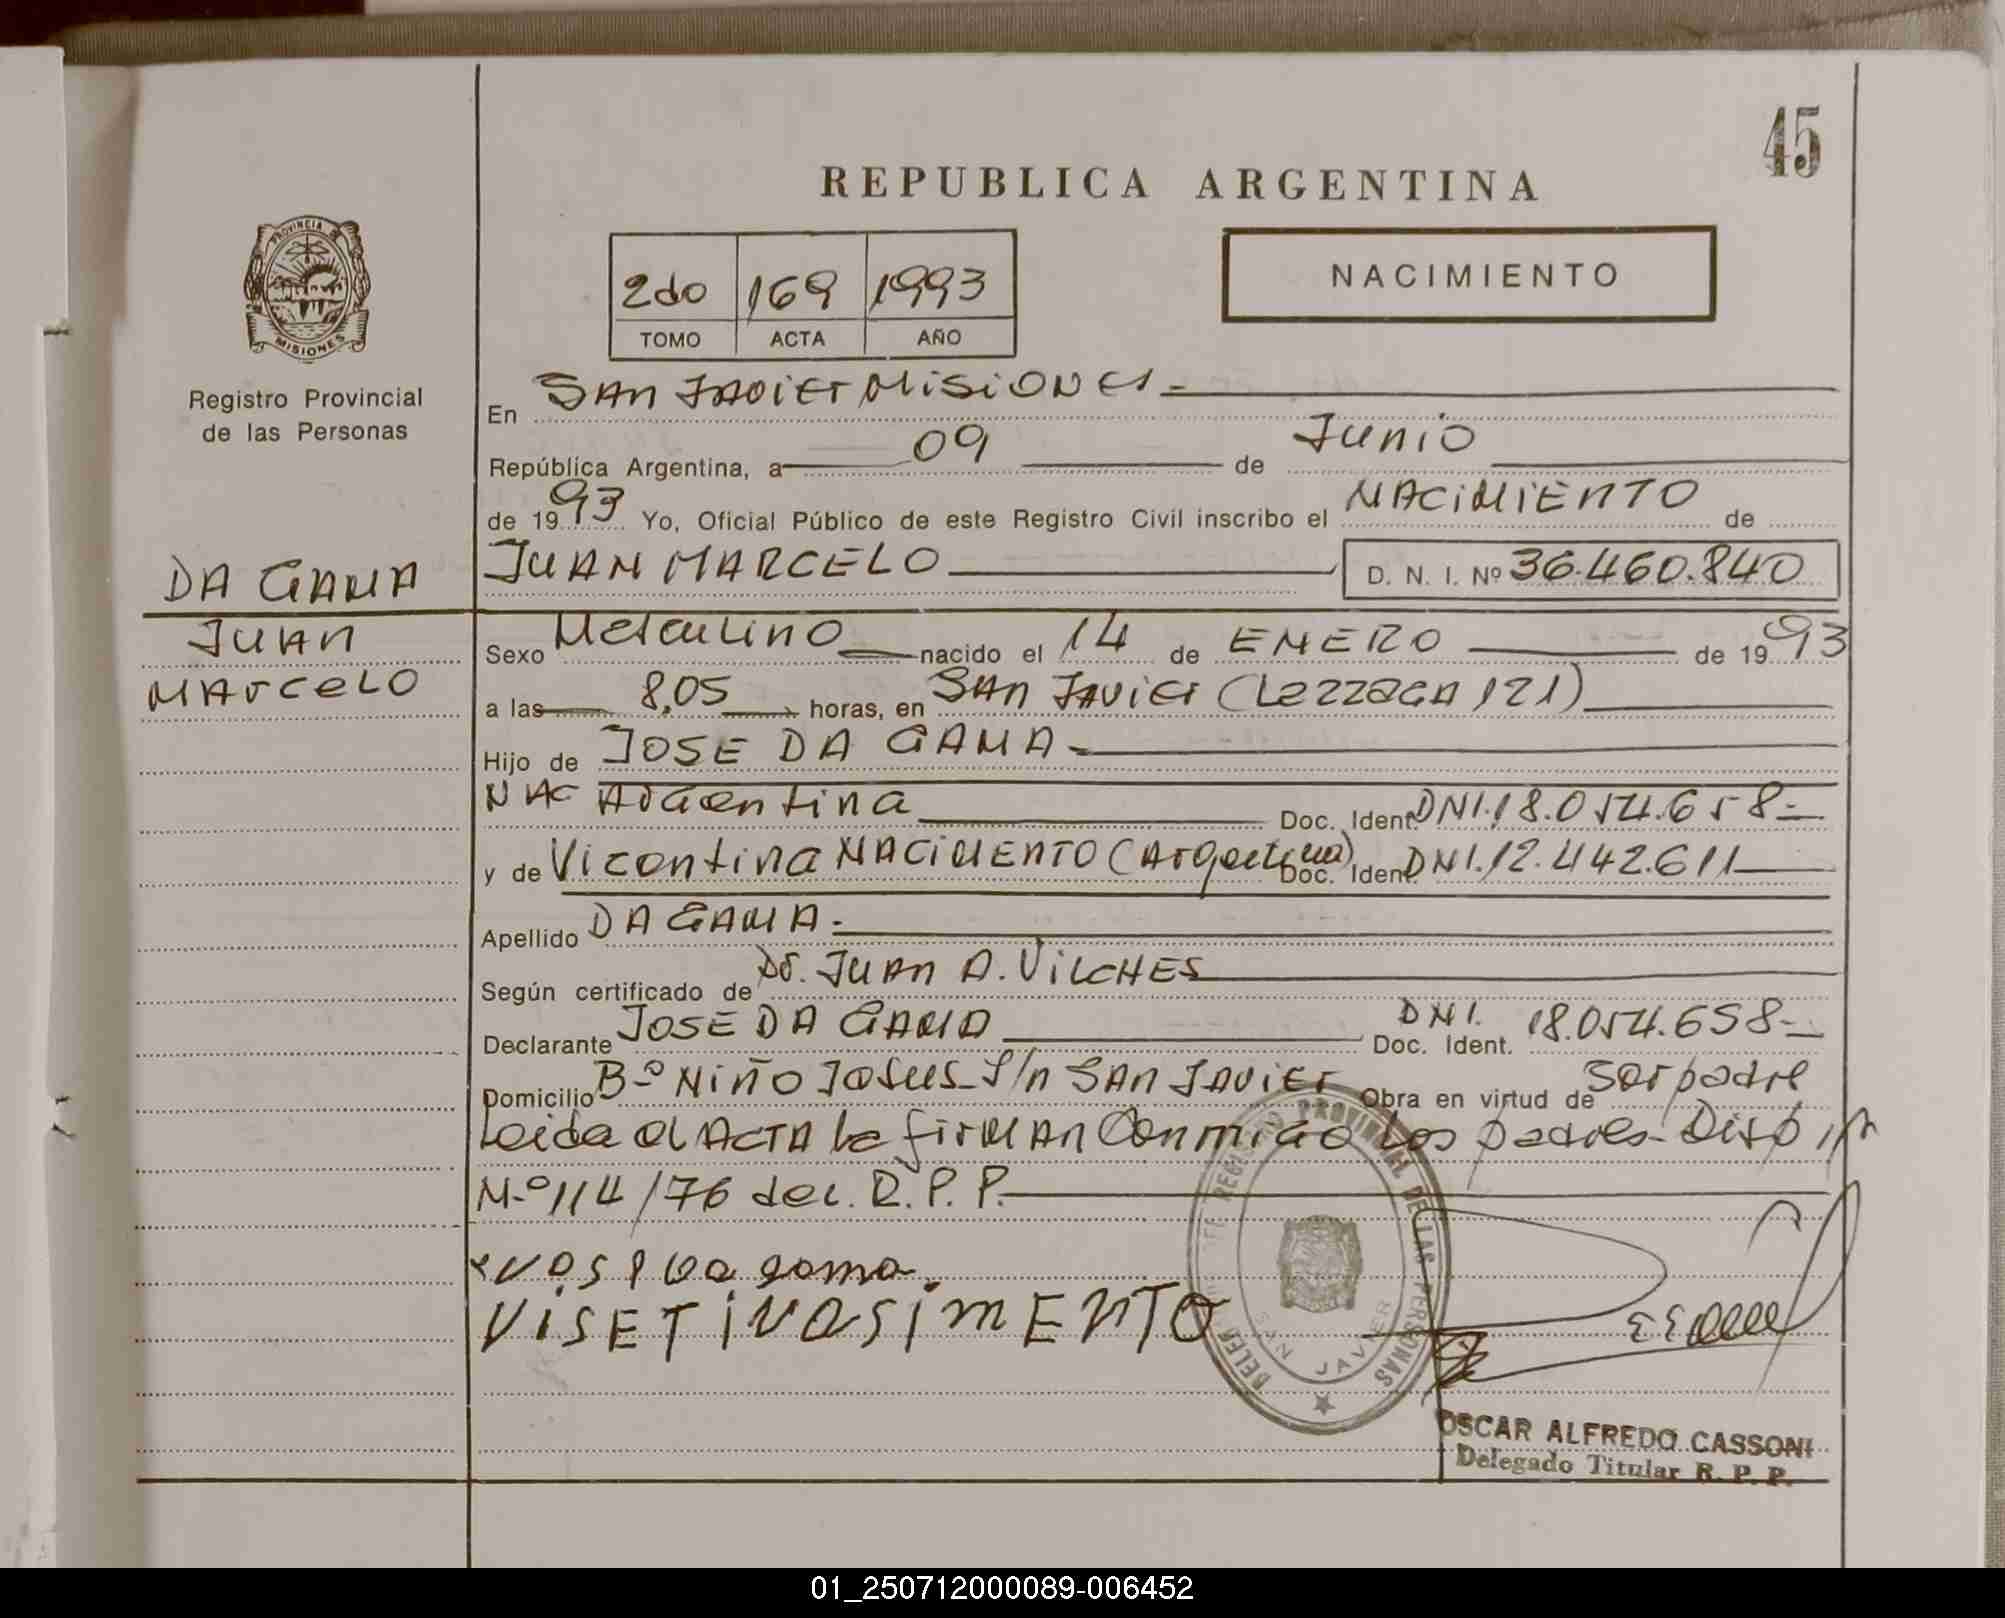 45
REPUBLICA ARGENTINA
PROVINCIA DE
MISIONES
Registro Provincial
de las Personas
2do 169 1993
TOMO ACTA AÑO
NACIMIENTO
En San Javier Misiones-
República Argentina, a 09 de Junio
de 1993 Yo, Oficial Público de este Registro Civil inscribo el NACIMIENTO de
DA GAMA JUAN MARCELO D. N. I. Nº 36.460.840
Juan Sexo Masculino nacido el 14 de ENERO de 1993
Marcelo a las 8,05 horas, en San Javier (Lezzaga 121)
Hijo de JOSE DA GAMA-
Nac Argentina Doc. Ident. DNI.18.054.658-
y de Vicentina NACIMENTO (Argentina) Doc. Ident. DNI.12.442.611
Apellido DA GAMA-
Según certificado de Dr. JUAN A. VILCHES
Declarante JOSE DA GAMA Doc. Ident. DNI. 18.054.658-
Domicilio Bº Niño Jesus S/n San Javier Obra en virtud de Ser padre
Leida el ACTA la firman Conmigo Los padres- Disp
Nº 114/76 del. R.P.P.
DELEG DE REGISTRO PROVINCIAL DE LAS PERSONAS
SAN JAVIER
Da gama
VISETINASIMENTO
OSCAR ALFREDO CASSONI
Delegado Titular R. P. P.
01_250712000089-006452